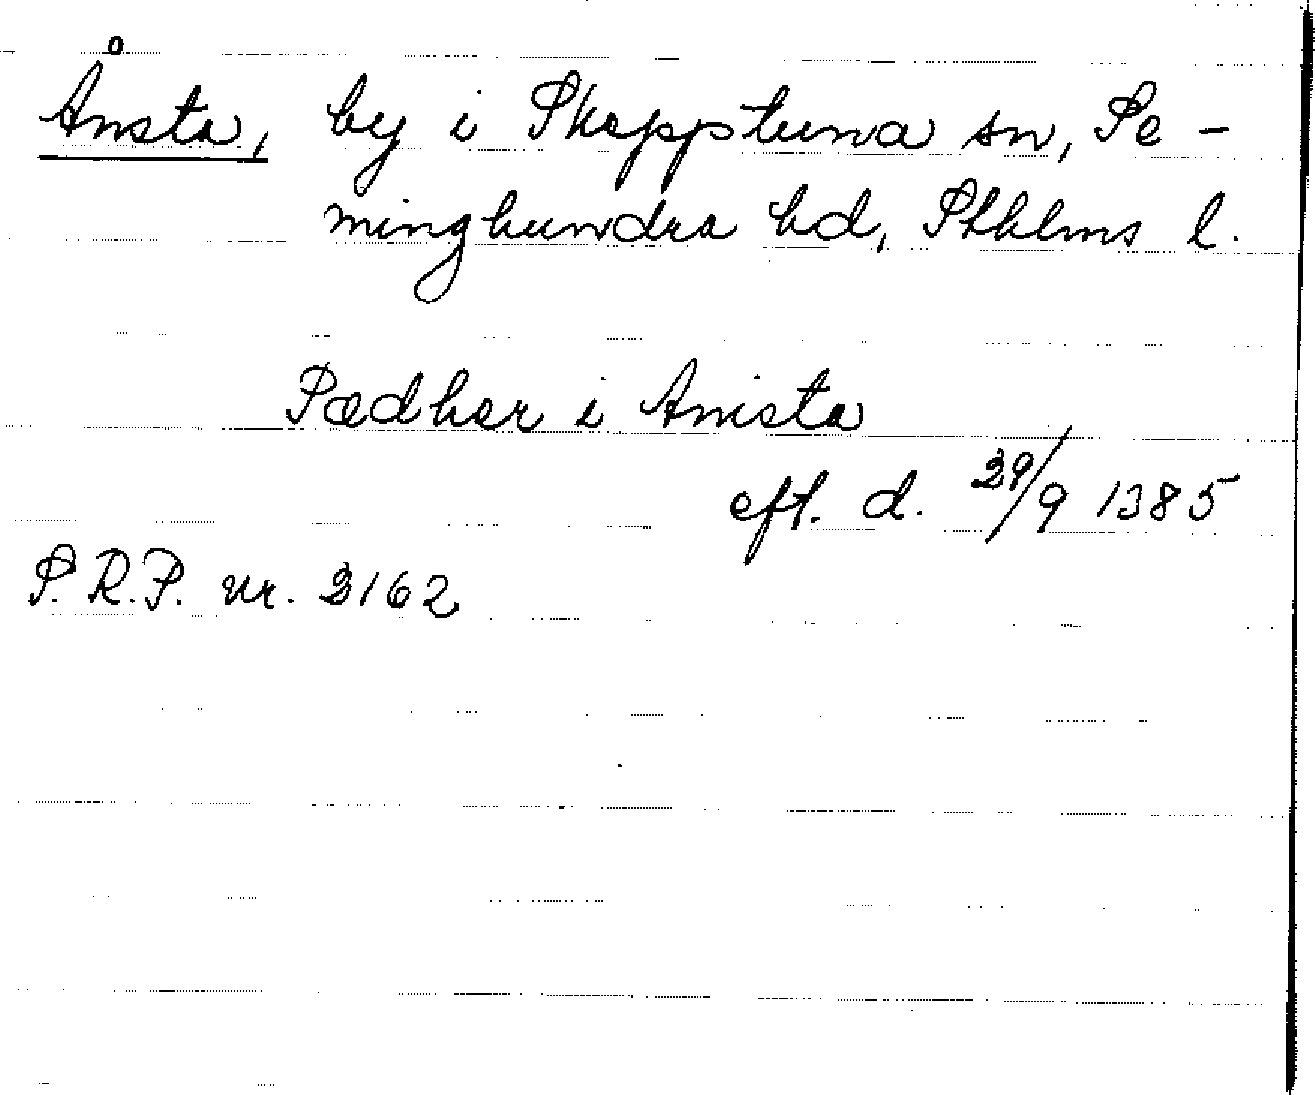 Ånsta, by i Skepptuna sn, Se-
minghundra hd, Sthlms l.
Pædher i Anista
eft. d. 29/9 1385
S.R.P. nr. 2162